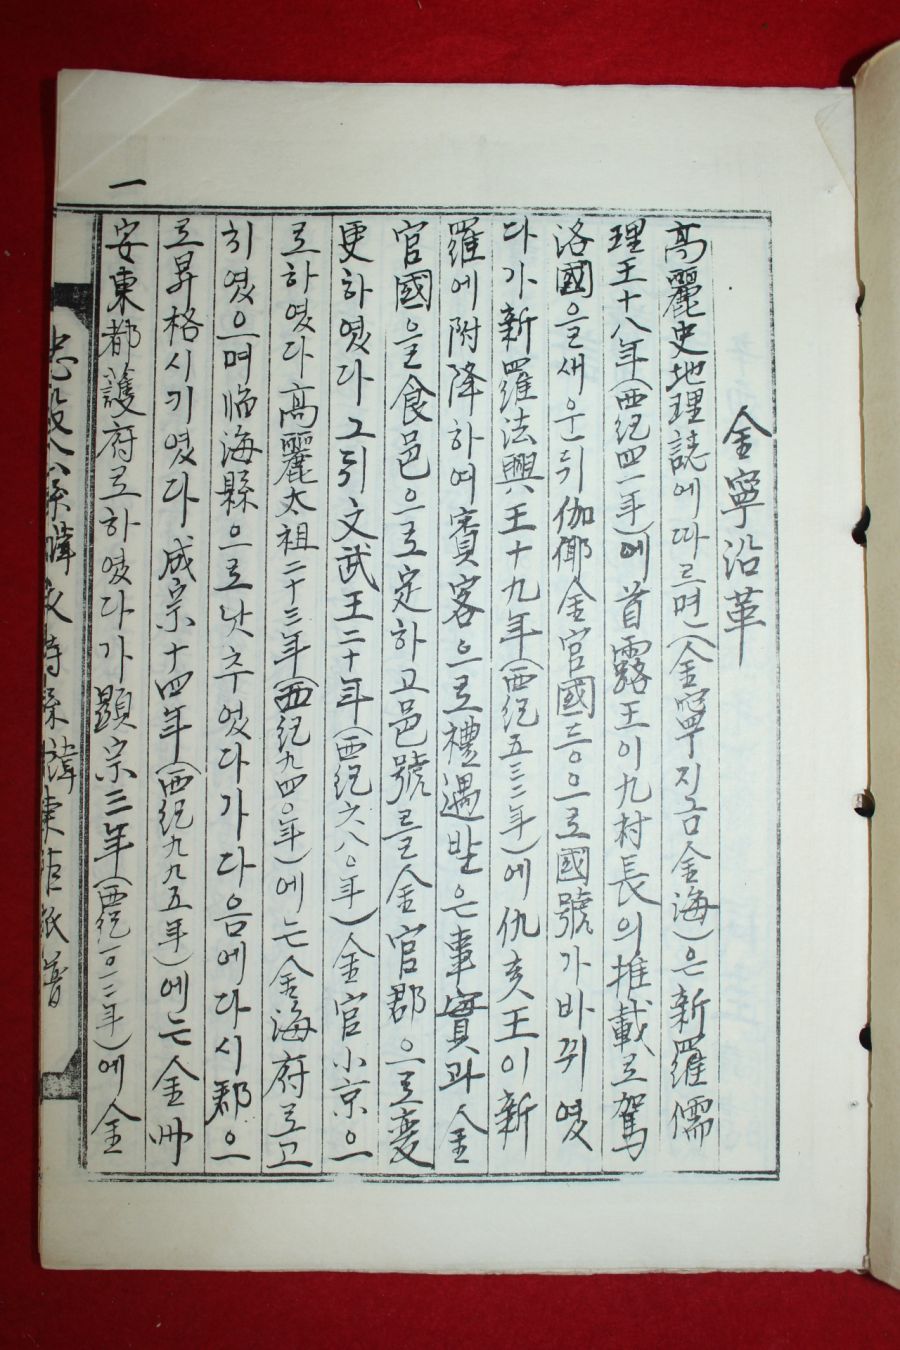 金寧沿革
高麗史地理誌에따르면(金寧지금金海)은新羅儒
理王十八年(西紀四一年)에首露王이九村長의推戴로駕
洛國을새운뒤伽倻金官國等으로國號가바뀌엿
다가新羅法興王十九年(西紀五三二年)에仇亥王이新
羅에附降하여賓客으로禮遇받은事實과金
官國을食邑으로定하고邑號를金官郡으로変
更하였다그뒤文武王二十年(西紀六八〇年)金官小京으
로하였다高麗太祖二十三年(西紀九四〇年)에는金海府로고
치였으며临海縣으로낫추엇다가다음에다시郡으
로昇格시키였다成宗十四年(西紀九九五年)에는金州
安東都護府로하였다가顯宗三年(西紀一〇一二年)에金
一